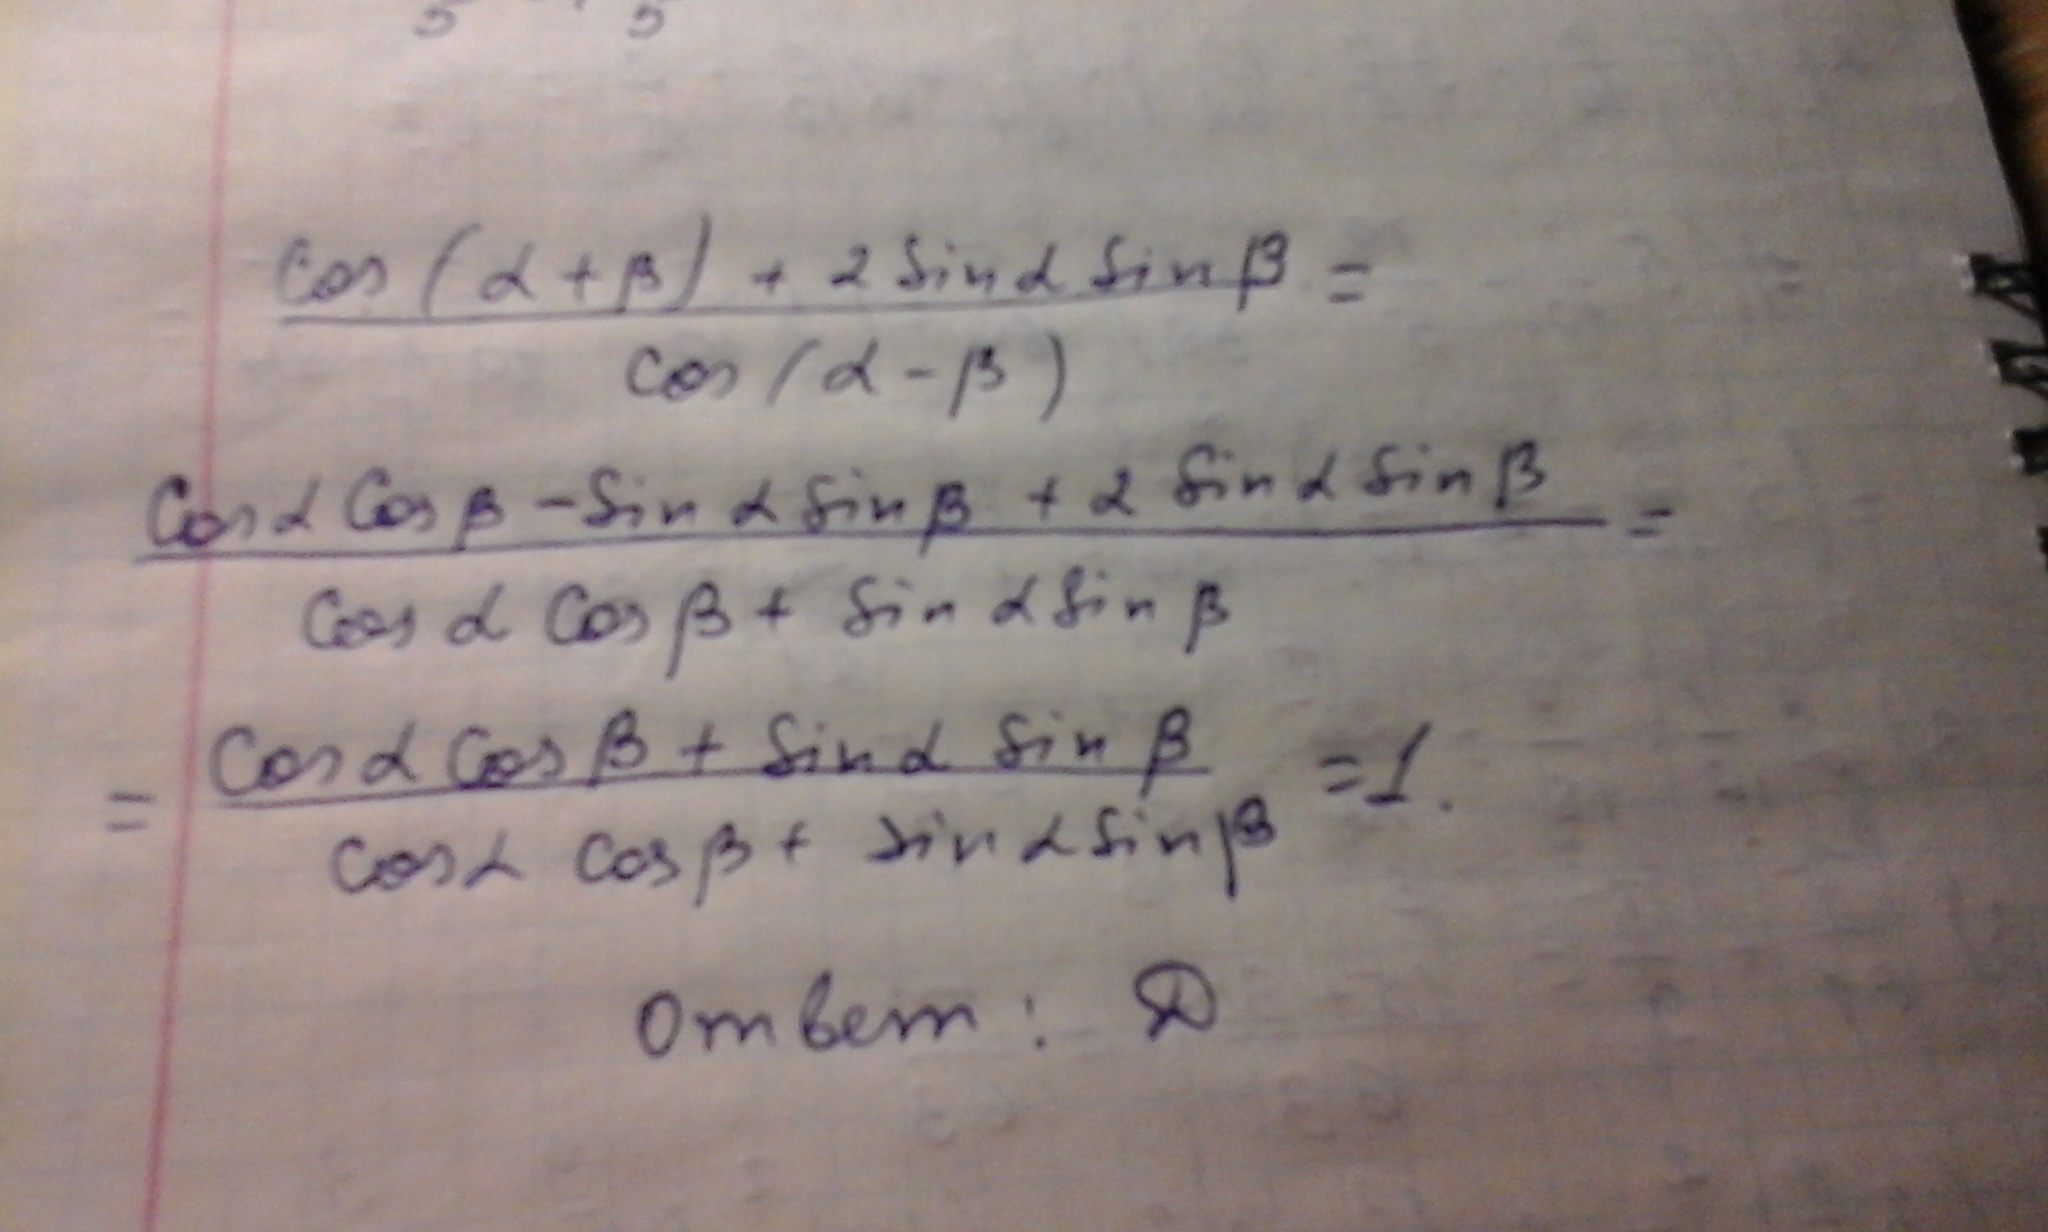 5 5
cos (α + β) + 2 sin α sin β =
cos (α - β)
Cos α Cos β - sin α sin β + 2 sin α sin β =
Cos α Cos β + sin α sin β
= Cos α Cos β + sin α sin β = 1.
Cos α Cos β + sin α sin β
Ответ: D